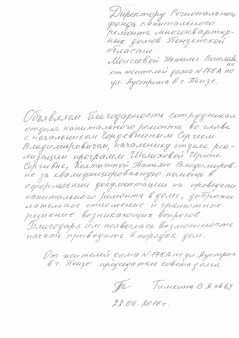 Директору Регионального
фонда капитального
ремонта многоквартир-
ных домов Пензенской
области
Моисеевой Наталье
от жителей дома №198А по
ул. Аустрина в г. Пензе.
Объявляем благодарность сотрудникам
отдела капитального ремонта во главе
с начальником Сергеем
Владимировичем, начальнику отдела реа-
лизации программ Ирине
Сергеевне, Татьяне Владимиров-
не за квалифицированную помощь в
оформлении документации на проведение
капитального ремонта в доме, доброже-
лательное отношение и грамотное
решение возникающих вопросов.
Благодаря им появилась возможность
начать приводить в порядок дом.
От жителей дома №198А по ул. Аустрина
в г. Пензе председатель совета дома
Тимкина В.Я.
22.06.2016 г.